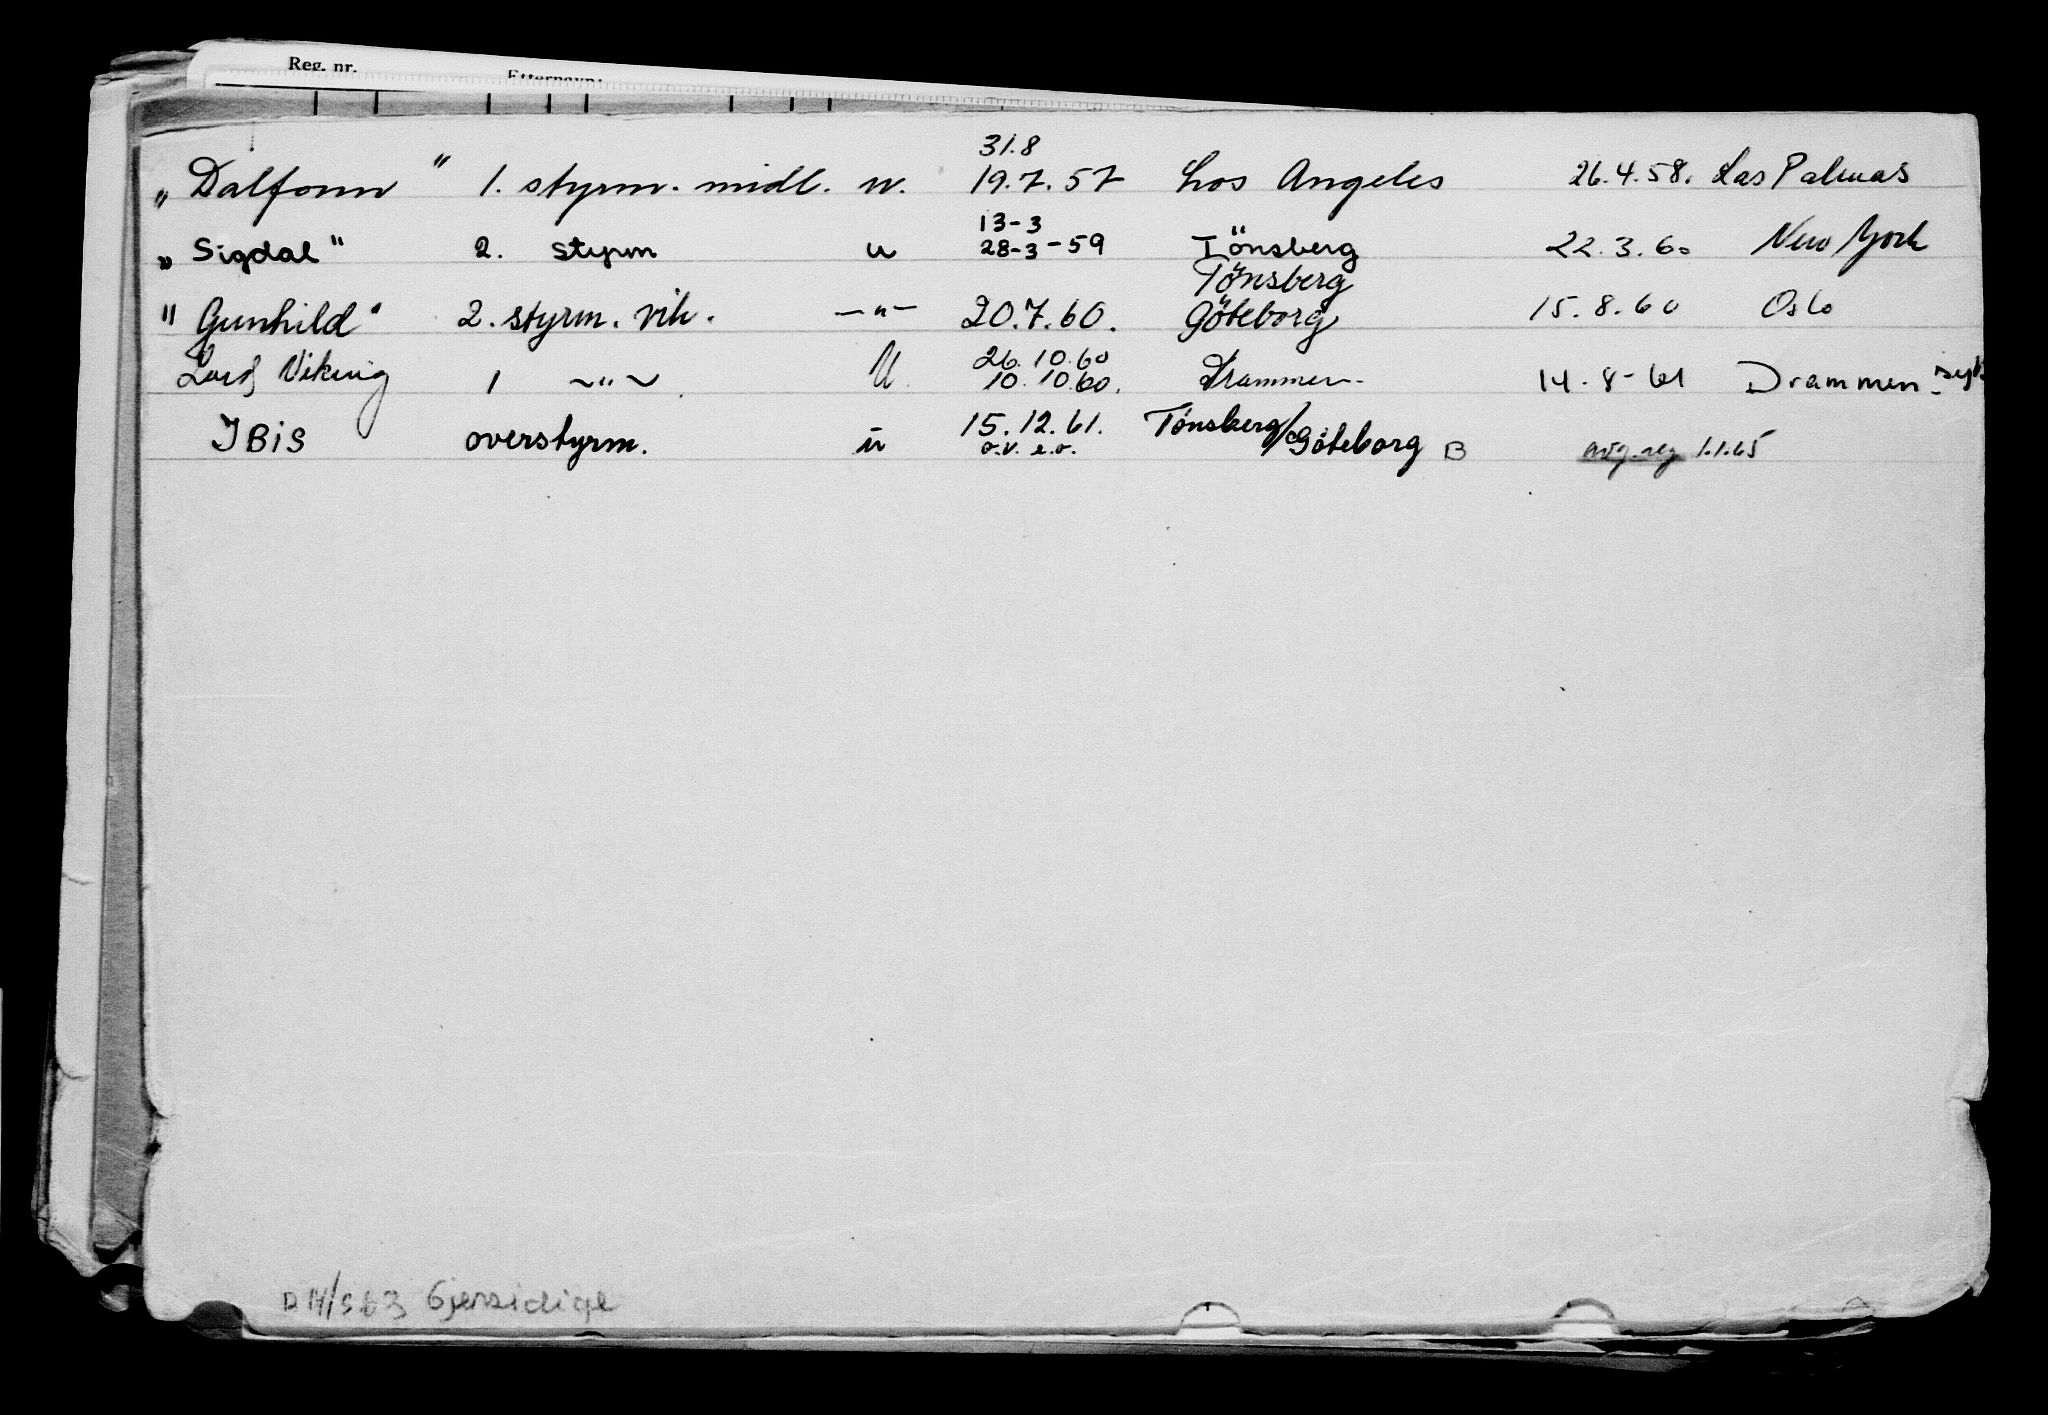 Reg. nr. Etternavn:
31.8
„ Dalfonn " 1. styrm. midl. u. 19.7.57 Los Angeles 26.4.58. Las Palmas
13-3
„ Sigdal" 2. styrm u 28-3-59 Tönsberg 22.3.60 New York
Tönsberg
" Gunhild" 2. styrm. vik. —"— 20.7.60. Göteborg 15.8.60 Oslo
26.10.60
Lord Viking 1 ~"~ U. 10.10.60. Drammen. 14-8-61 Drammen. syk
IBIS overstyrm. u 15.12.61. Tønsberg/Göteborg B avg. reg 1.1.65
o.v. e.o.
Gjensidige